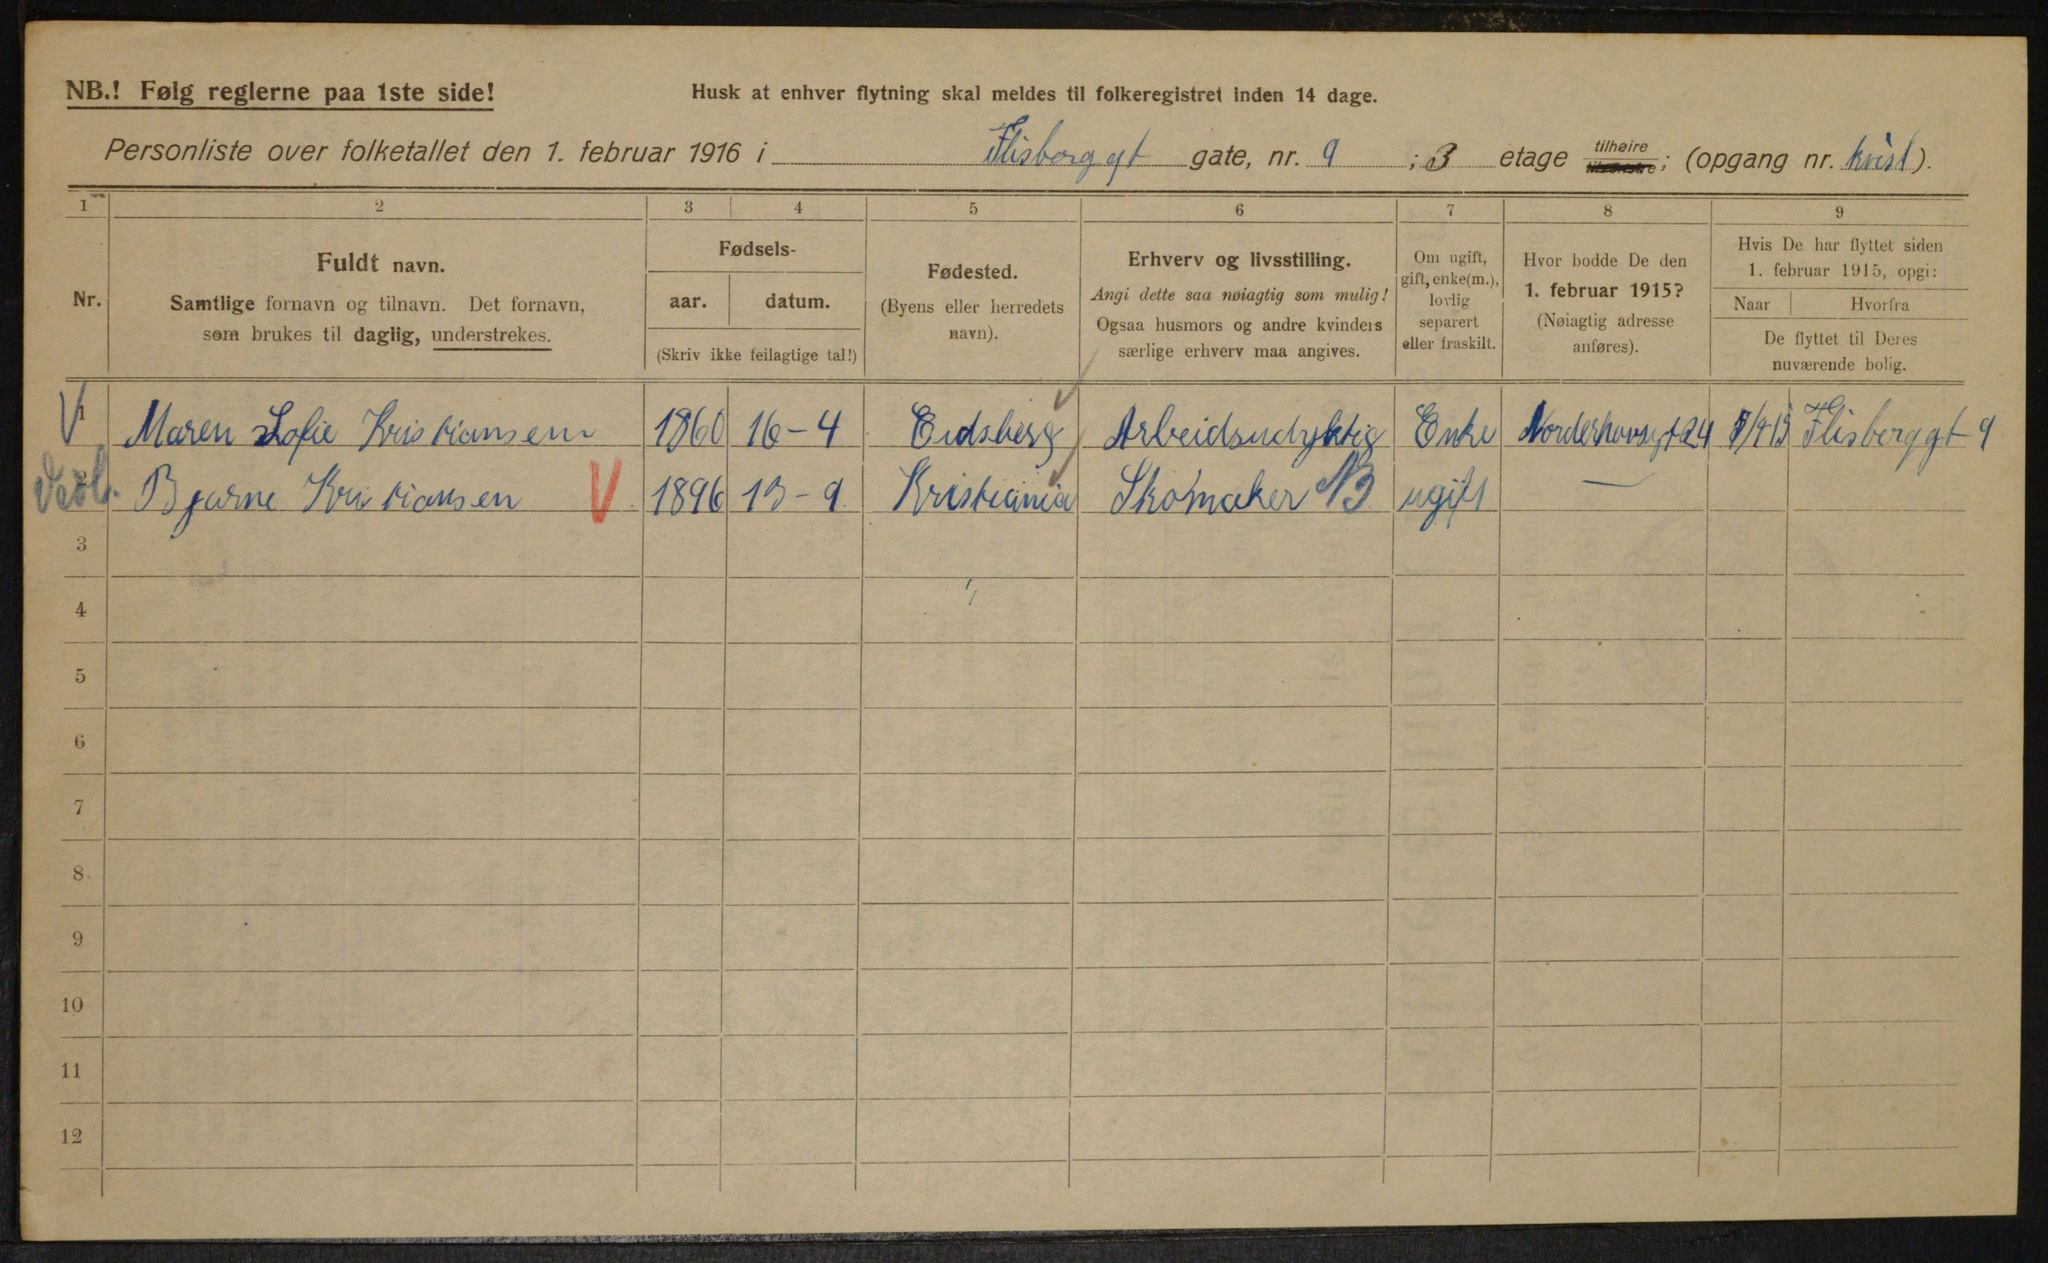 NB.! Følg reglerne paa 1ste side!
Husk at enhver flytning skal meldes til folkeregistret inden 14 dage.
Personliste over folketallet den 1. februar 1916 i Flisberg gt gate, nr. 9 ; 3 etage tilhøire tilvenstre; (opgang nr. kvist).
1 2 3 4 5 6 7 8 9
Nr.
Fuldt navn.
Samtlige fornavn og tilnavn. Det fornavn,
som brukes til daglig, understrekes.
Fødsels-
aar. datum.
(Skriv ikke feilagtige tal!)
Fødested.
(Byens eller herredets
navn).
Erhverv og livsstilling.
Angi dette saa nøiagtig som mulig!
Ogsaa husmors og andre kvinders
særlige erhverv maa angives.
Om ugift,
gift, enke(m.),
lovlig
separert
eller fraskilt.
Hvor bodde De den
1. februar 1915?
(Nøiagtig adresse
anføres).
Hvis De har flyttet siden
1. februar 1915, opgi:
Naar Hvorfra
De flyttet til Deres
nuværende bolig.
V 1 Maren Sofie Kristiansen 1860 16-4 Eidsberg Arbeidsudyktig Enke Norderhovsgt 24 Flisberg gt 9
2 Bjarne Kristiansen V 1896 13-9 Kristiania Skomaker B ugift —
3
4
5
6
7
8
9
10
11
12